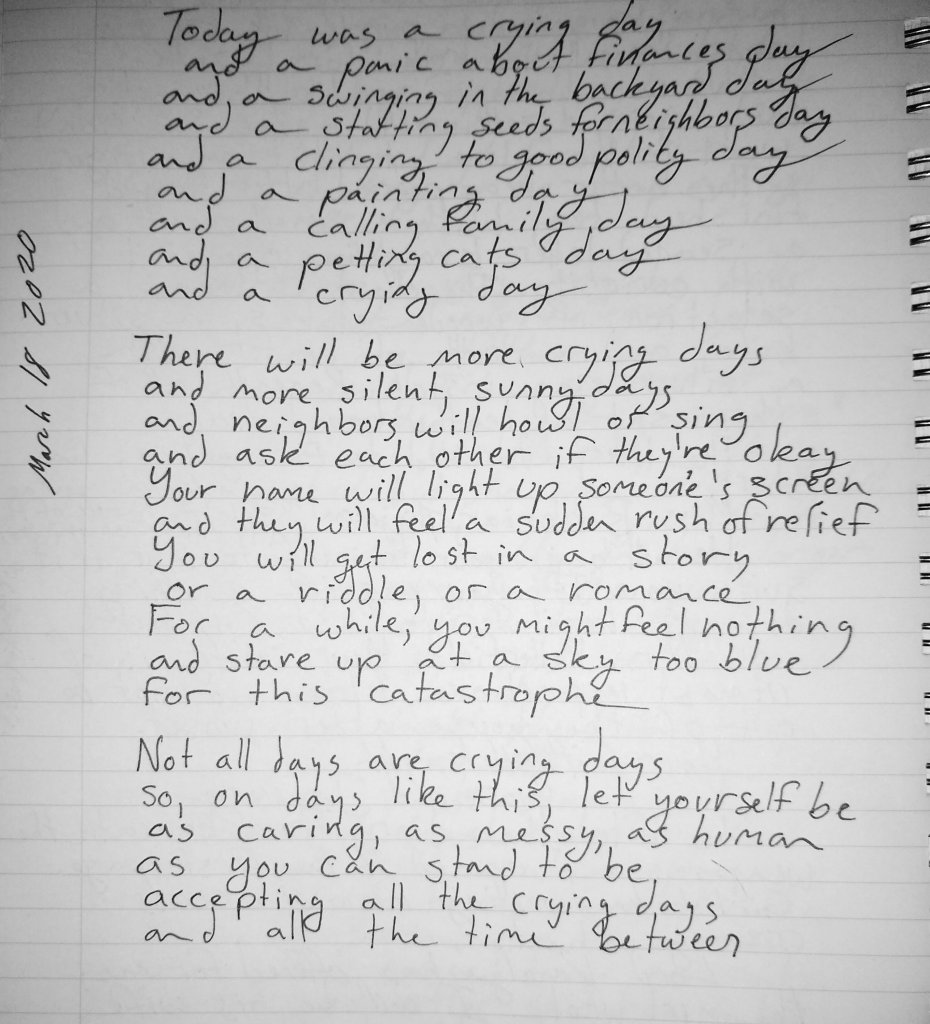 Today was a crying day
and a panic about finances day
and a swinging in the backyard day
and a starting seeds for neighbors day
and a clinging to good polity day
and a painting day
and a calling family day
and a petting cats day
and a crying day
There will be more crying days
and more silent, sunny days
and neighbors will howl or sing
and ask each other if they're okay
Your name will light up someone's screen
and they will feel a sudden rush of relief
You will get lost in a story
or a riddle, or a romance
For a while, you might feel nothing
and stare up at a sky too blue
for this catastrophe
Not all days are crying days
so, on days like this, let yourself be
as caring, as messy, as human
as you can stand to be,
accepting all the crying days
and all the time between
March 18 2020